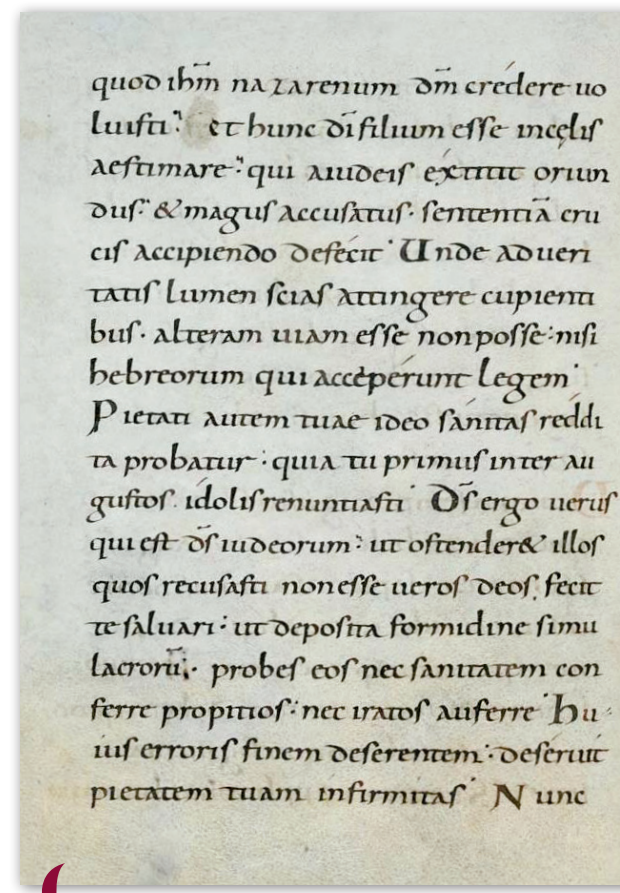 quod ihm̄ nazarenum dm̄ credere uo
luisti et hunc dī filium esse incęlis
aestimare qui aiudeis extitit oriun
dus & magus accusatus. sententiā cru
cis accipiendo defecit Unde adueri
tatis lumen scias attingere cupienti
bus. alteram uiam esse nonposse nisi
hebreorum qui acceperunt legem
Pietati autem tuae ideo sanitas reddi
ta probatur quia tu primus inter au
gustos. idolis renuntiasti Ds̄ ergo uerus
qui est ds̄ iudeorum ut ostender& illos
quos recusasti nonesse ueros deos. fecit
te saluari ut deposita formidine simu
lacrorū. probes eos nec sanitatem con
ferre propitios nec iratos auferre hu
ius erroris finem deserentem deseruit
pietatem tuam infirmitas Nunc